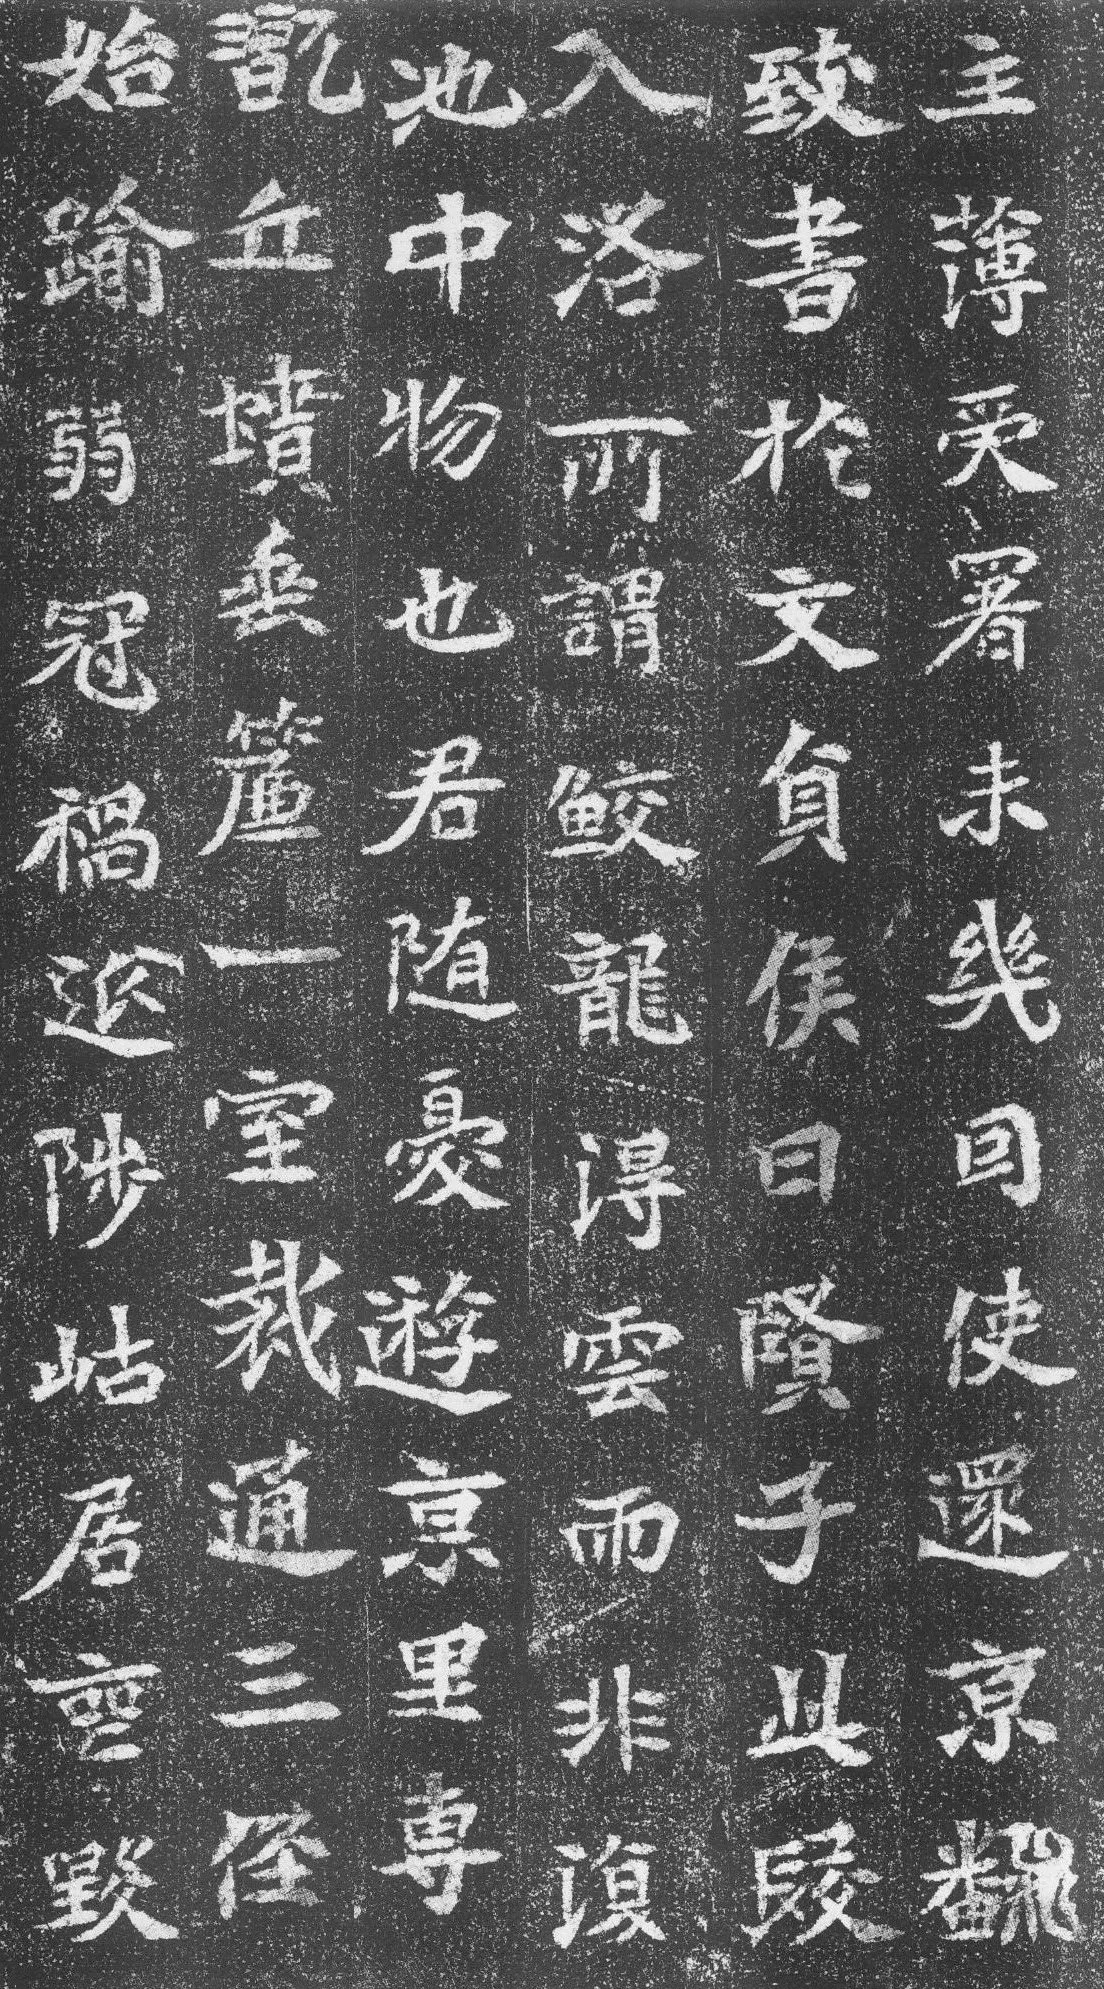 主薄受署未幾回使還京飜
致書於文貞侯曰賢子此段
入洛所謂鮫龍得雲雨非復
池中物也君随憂遊京里専
翫丘墳垂簾一室裁通三徑
始踰弱冠禍延陟岵居喪毀